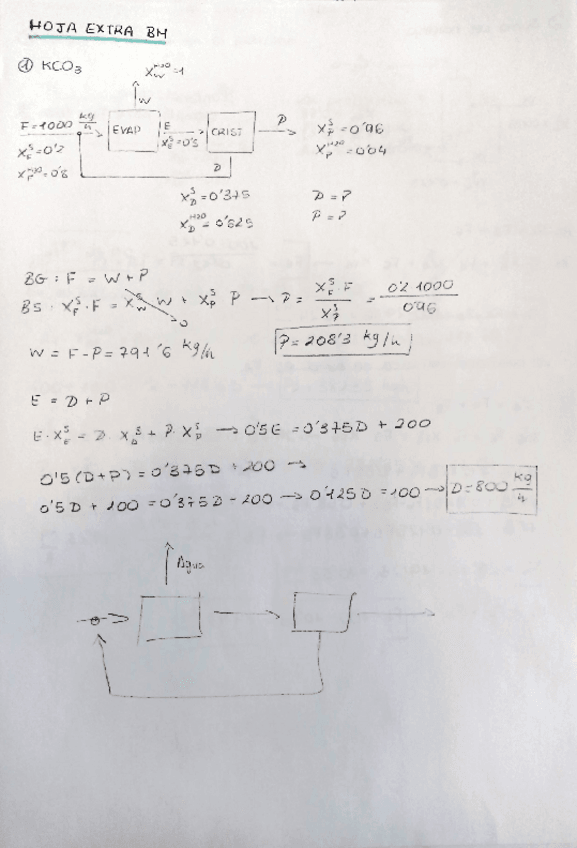 HOJA EXTRA BM
① KCO3
X_W^H2O=1
W
F=1000 kg/h
EVAP
E
X_E^S=0'5
CRIST
P
X_P^S=0'96
X_F^S=0'2
X_P^H2O=0'04
X_F^H2O=0'8
D
X_D^S=0'375
D=?
X_D^H2O=0'625
P=?
BG: F = W+P
BS. X_F^S.F = X_W^S W + X_P^S P → P = X_F^S.F / X_P^S = 0'2 1000 / 0'96
0
W = F-P = 791'6 kg/h
P=208'3 kg/h
E = D+P
E.X_E^S = D X_D^S + P.X_P^S → 0'5E = 0'375D + 200
0'5(D+P) = 0'375D + 200 →
0'5D + 100 = 0'375D - 200 → 0'125D = 100 → D=800 kg/h
Agua